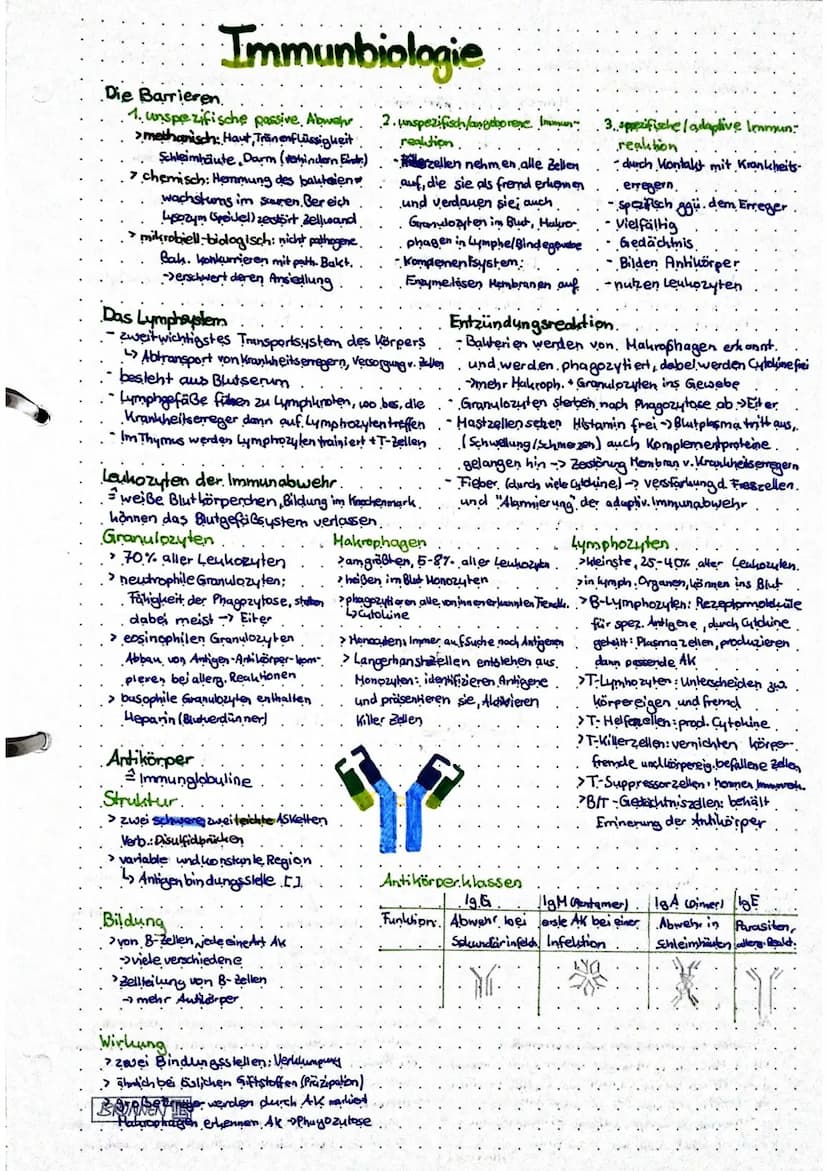 Immunbiologie
Die Barrieren
1. unspezifische passive Abwehr
> mechanisch: Haut, Tränenflüssigkeit
Schleimhäute, Darm (verhindern Eindr.)
> chemisch: Hemmung des bakterien-
wachstums im sauren Bereich
Lysozym (Speichel) zerstört Zellwand
> mikrobiell-biologisch: nicht pathogene
Bak. konkurrieren mit path. Bakt.
-> erschwert deren Ansiedlung
2. unspezifisch/angeborene Immun-
reaktion
- Fresszellen nehmen alle Zellen
auf, die sie als fremd erkennen
und verdauen sie; auch
Granulozyten im Blut, Makro-
phagen in Lymphe/Bindegewebe
- Komplementsystem:
Enzyme lösen Membranen auf
3. spezifische/adaptive Immun-
reaktion
- durch Kontakt mit Krankheits-
erregern
- spezifisch ggü. dem Erreger
- Vielfältig
- Gedächtnis
- Bilden Antikörper
- nutzen Leukozyten
Das Lymphsystem
- zweitwichtigstes Transportsystem des Körpers
↳ Abtransport von Krankheitserregern, Versorgung v. Zellen
- besteht aus Blutserum
- Lymphgefäße führen zu Lymphknoten, wo bes. die
Krankheitserreger dann auf Lymphozyten treffen
- Im Thymus werden Lymphozyten trainiert + T-Zellen
Entzündungsreaktion
- Bakterien werden von Makrophagen erkannt
und werden phagozytiert, dabei werden Cytokine frei
-> mehr Makroph. + Granulozyten ins Gewebe
- Granulozyten sterben nach Phagozytose ab -> Eiter
- Mastzellen setzen Histamin frei -> Blutplasma tritt aus,
(Schwellung/Schmerzen) auch Komplementproteine
gelangen hin -> Zerstörung Membran v. Krankheitserregern
- Fieber (durch viele Cytokine) -> Verstärkung d. Fresszellen
und "Alarmierung" der adaptiv. Immunabwehr
Leukozyten der Immunabwehr
≙ weiße Blutkörperchen, Bildung im Knochenmark
können das Blutgefäßsystem verlassen
Granulozyten
> 70% aller Leukozyten
> neutrophile Granulozyten:
Fähigkeit der Phagozytose, sterben
dabei meist -> Eiter
> eosinophilen Granulozyten
Abbau von Antigen-Antikörper-kom-
plexen bei allerg. Reaktionen
> basophile Granulozyten enthalten
Heparin (Blutverdünner)
Makrophagen
> am größten, 5-8% aller Leukozyten
> heißen im Blut Monozyten
> phagozytieren alle von innen erkannten Fremdk.
↳ Cytokine
> Monozyten: Immer auf Suche nach Antigenen
> Langerhanszellen entstehen aus
Monozyten: identifizieren Antigene
und präsentieren sie, Aktivieren
Killer Zellen
Lymphozyten
> kleinste, 25-40% aller Leukozyten
> in lymph. Organen, können ins Blut
> B-Lymphozyten: Rezeptormoleküle
für spez. Antigene, durch Cytokine
geteilt: Plasmazellen, produzieren
dann passende AK
> T-Lymhozyten: Unterscheiden zw.
körpereigen und fremd
> T-Helferzellen: prod. Cytokine
> T-Killerzellen: vernichten körper-
fremde und körpereig. befallene Zellen
> T-Suppressorzellen: hemmen
> B/T-Gedächtniszellen: behält
Errinerung der Antikörper
Antikörper
≙ Immunglobuline
Struktur
> zwei schwere, zwei leichte ASKetten
Verb.: Disulfidbrücken
> variable und konstante Region
↳ Antigenbindungsstelle [ ]
Bildung
> von B-Zellen, jede eine Art AK
-> viele verschiedene
> Zellteilung von B-Zellen
-> mehr Antikörper
Wirkung
> zwei Bindungsstellen: Verklumpung
> ähnlich bei löslichen Giftstoffen (Präzipation)
> große Erreger werden durch AK markiert
Makrophagen erkennen AK -> Phagozytose
BRUNNEN
Antikörperklassen
IgG IgM (Pentamer) IgA (Dimer) IgE
Funktion: Abwehr bei erste AK bei einer Abwehr in Parasiten,
Sekundärinfekt. Infektion Schleimhäuten allerg. Reakt.